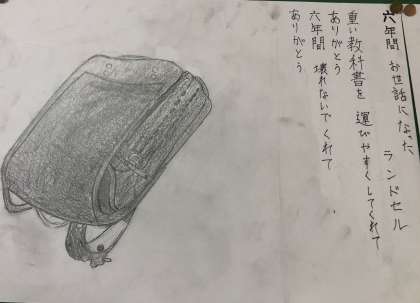 六年間 お世話になった
ランドセル
重い教科書を 運びやすくしてくれて
ありがとう
六年間 壊れないでくれて
ありがとう